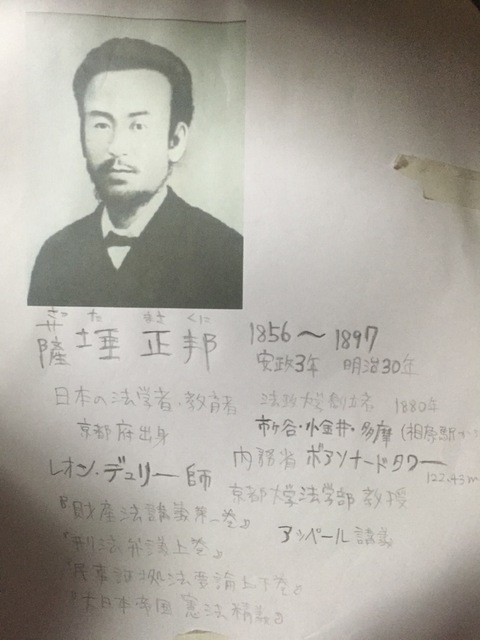 さつ た まさ くに
薩埵正邦
1856〜1897
安政3年 明治30年
日本の法学者・教育者
京都府出身
法政大学創立者 1880年
市ケ谷・小金井・多摩(相原駅から
レオン・デュリー師
内務省 ボアソナードタワー
122.43m
京都大学法学部教授
『財産法講義第一巻』
アッペール講義
『刑法 上巻』
『民事証拠法要論上下巻』
『大日本帝国憲法精義』